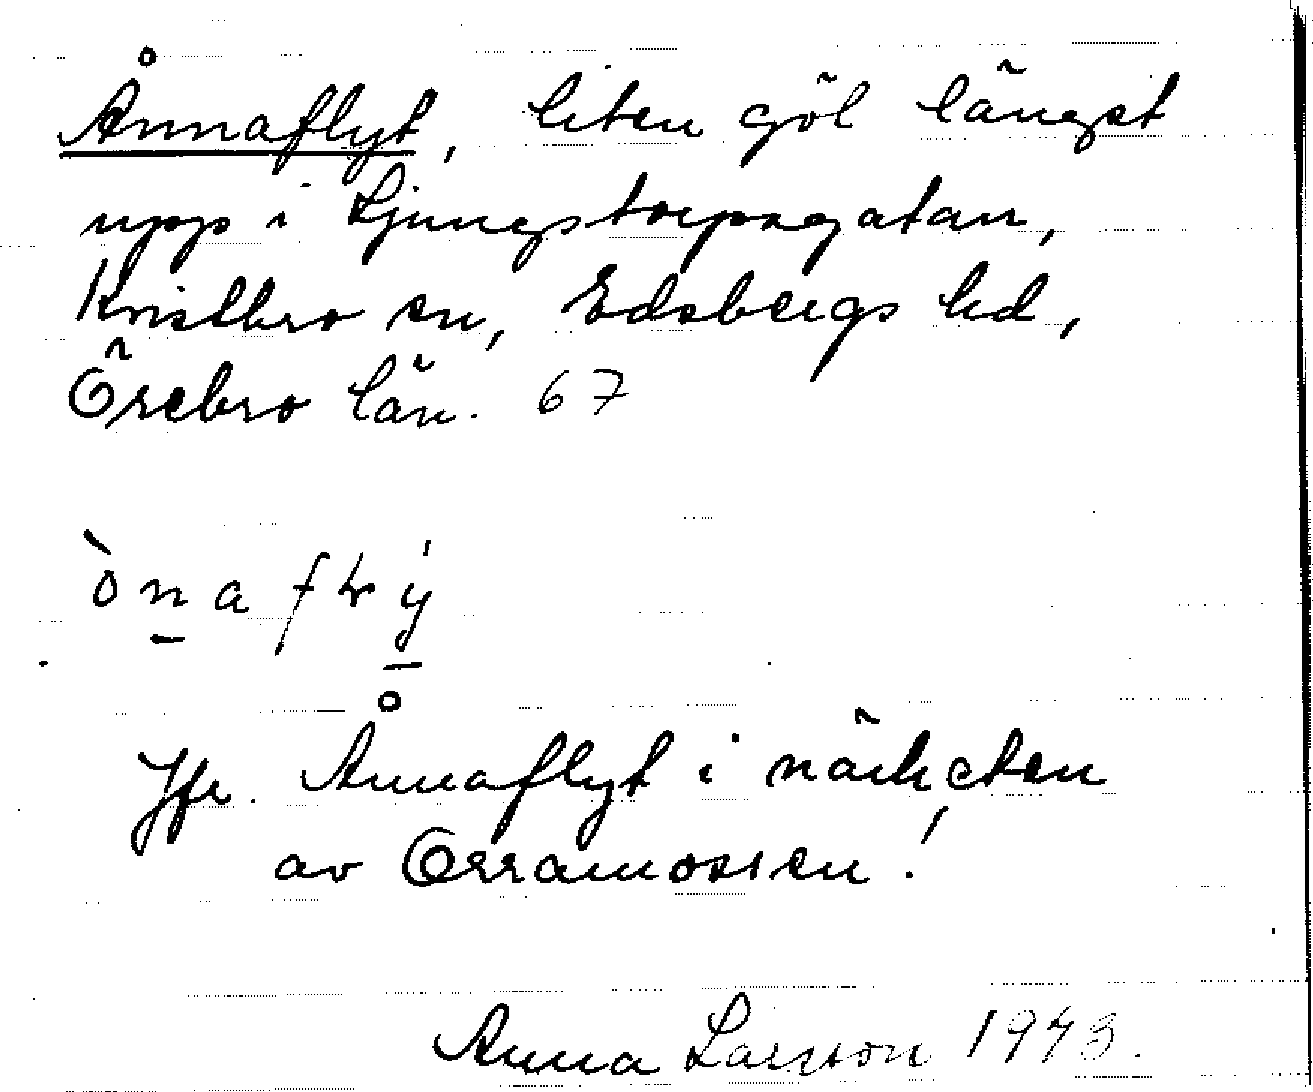 Ånnaflyt, liten göl längst
upp i Ljungstorpagatan,
Kvistbro sn, Edsbergs hd,
Örebro län. 67
ònafɫý
Jfr. Ånnaflyt i närheten
av Orramossen!
Anna Larsson 1943.